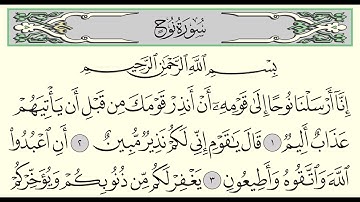 سُورَةُ نُوحٍ
بِسْمِ ٱللَّهِ ٱلرَّحْمَٰنِ ٱلرَّحِيمِ
إِنَّآ أَرْسَلْنَا نُوحًا إِلَىٰ قَوْمِهِۦٓ أَنْ أَنذِرْ قَوْمَكَ مِن قَبْلِ أَن يَأْتِيَهُمْ
عَذَابٌ أَلِيمٌ ١ قَالَ يَٰقَوْمِ إِنِّي لَكُمْ نَذِيرٌ مُّبِينٌ ٢ أَنِ ٱعْبُدُوا۟
ٱللَّهَ وَٱتَّقُوهُ وَأَطِيعُونِ ٣ يَغْفِرْ لَكُم مِّن ذُنُوبِكُمْ وَيُؤَخِّرْكُمْ